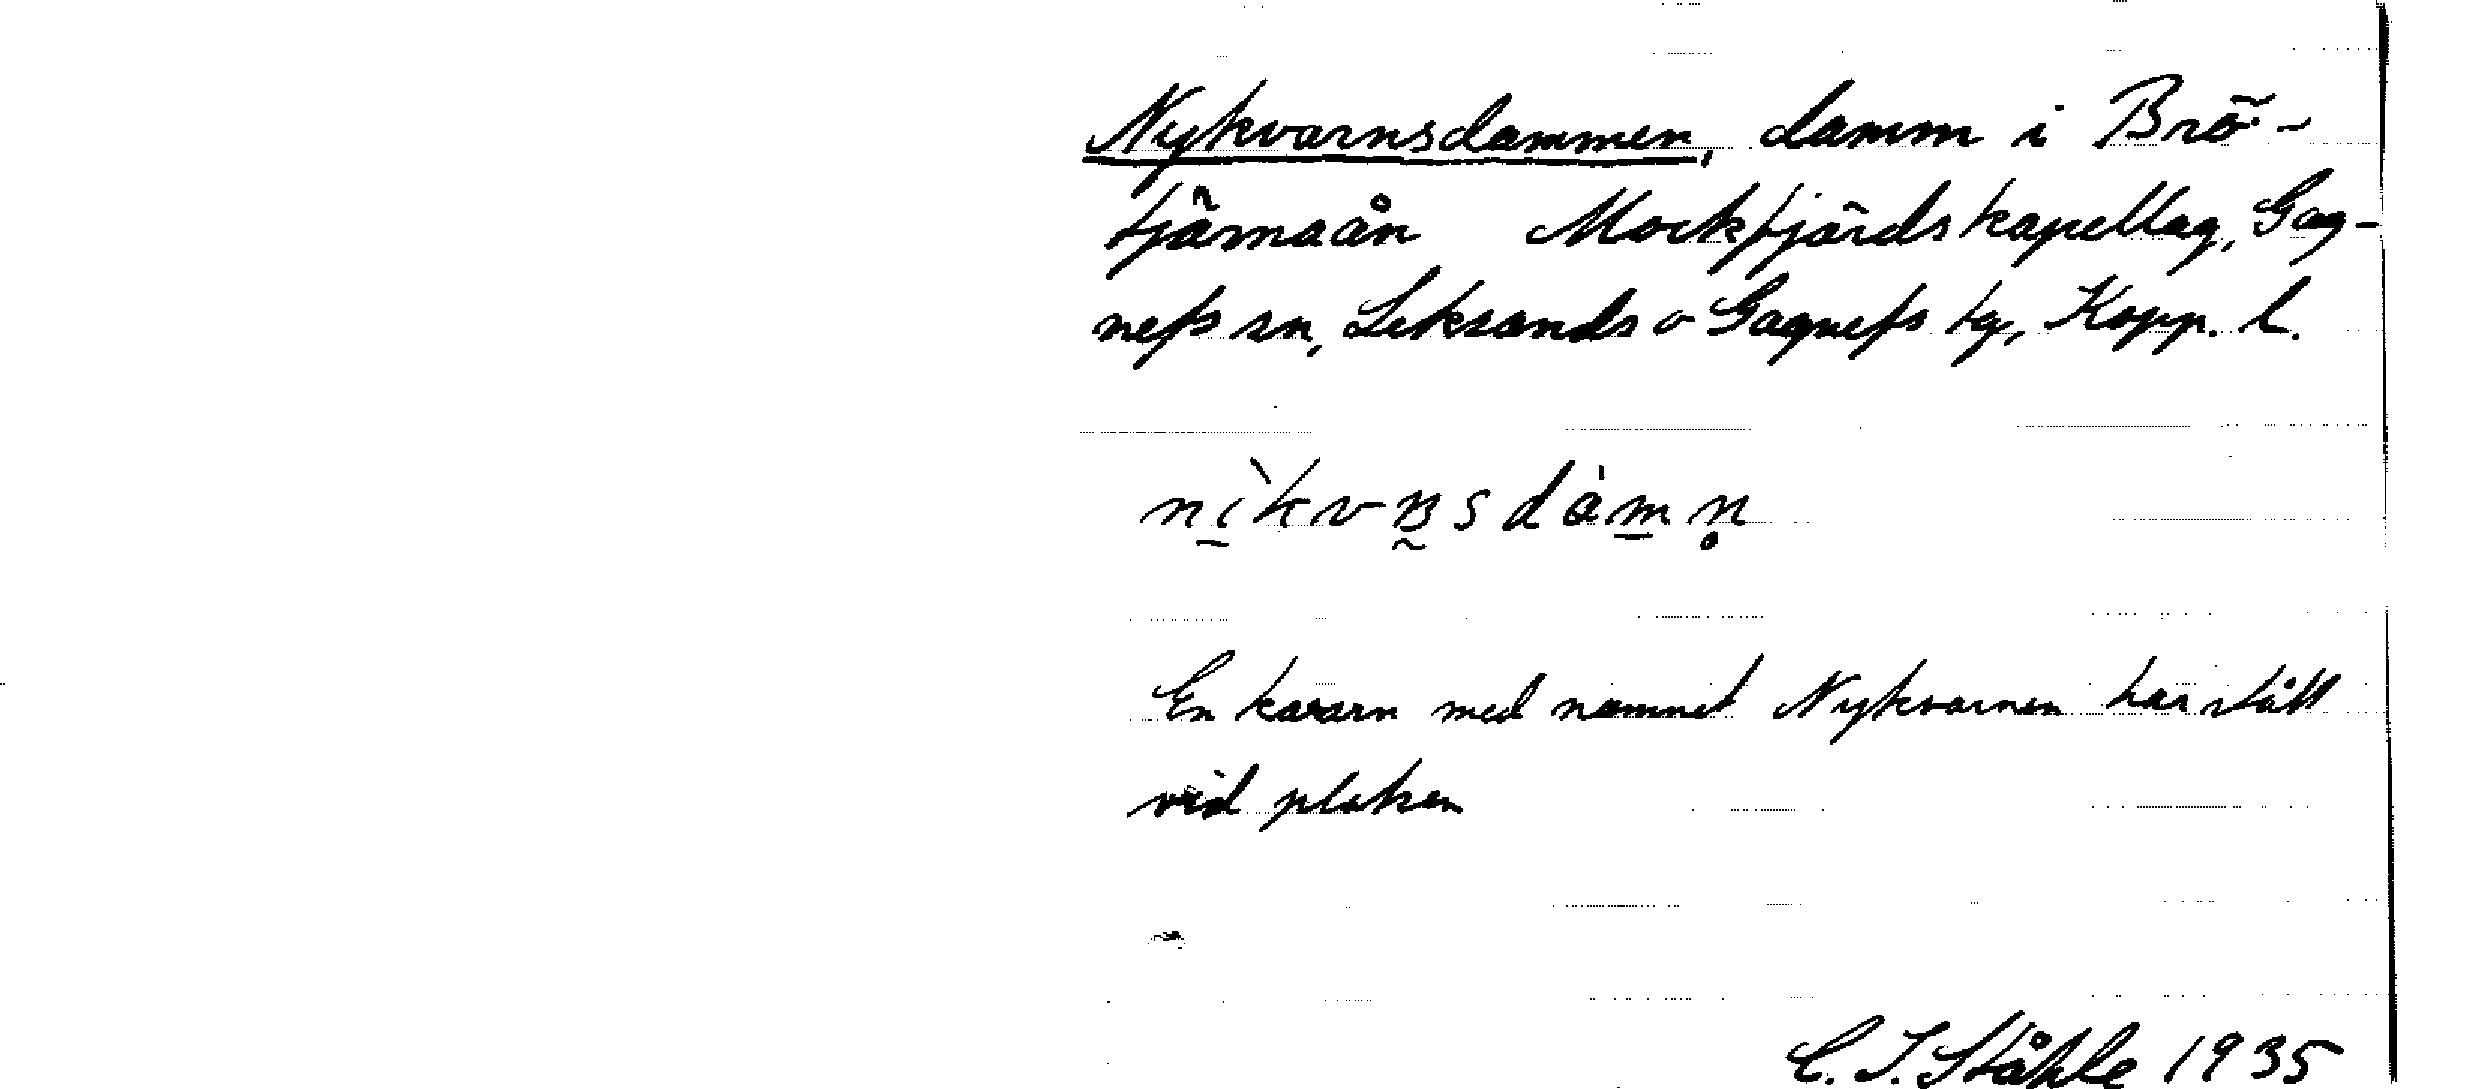 Nykvarnsdammen, damm i Brö-
tjärnaån Mockfjärds kapellag, Gag-
nefs sn, Leksands o Gagnefs tg, Kopp. l.
En kvarn med namnet Nykvarnen har stått
vid platsen
C. I. Ståhle 1935